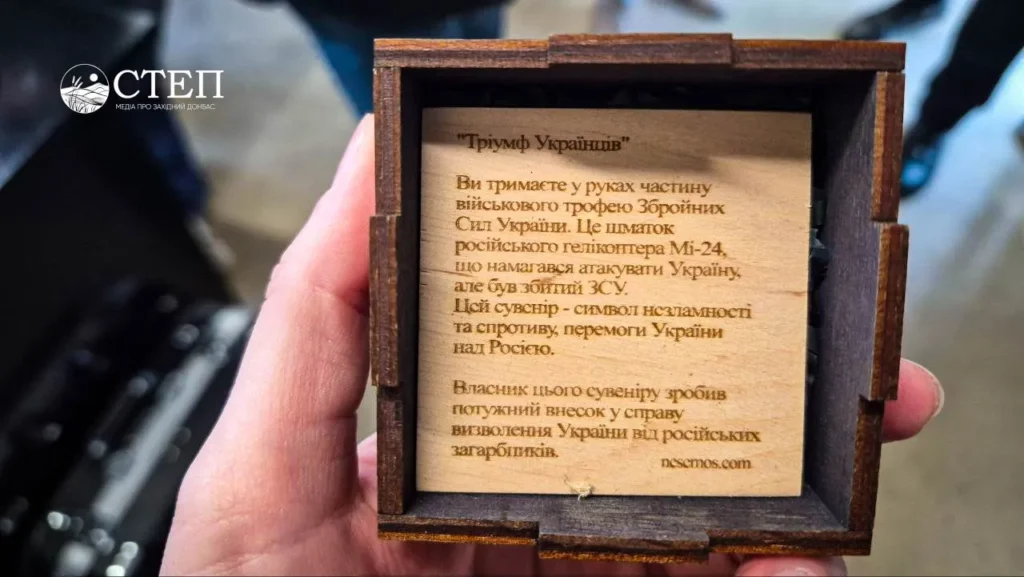 СТЕП
МЕДІА ПРО ЗАХІДНИЙ ДОНБАС
"Тріумф Українців"
Ви тримаєте у руках частину
військового трофею Збройних
Сил України. Це шматок
російського гелікоптера Мі-24,
що намагався атакувати Україну,
але був збитий ЗСУ.
Цей сувенір - символ незламності
та спротиву, перемоги України
над Росією.
Власник цього сувеніру зробив
потужний внесок у справу
визволення України від російських
загарбників.